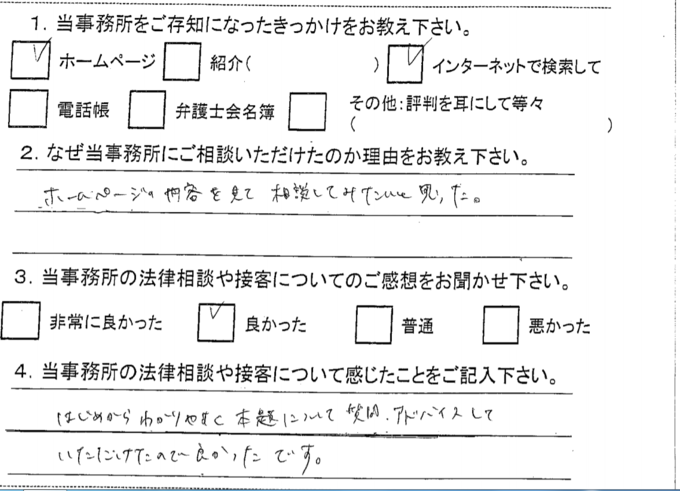 1. 当事務所をご存知になったきっかけをお教え下さい。
ホームページ 紹介( ) インターネットで検索して
電話帳 弁護士会名簿 その他:評判を耳にして等々
( )
2. なぜ当事務所にご相談いただけたのか理由をお教え下さい。
ホームページの内容を見て相談してみたいと思った。
3. 当事務所の法律相談や接客についてのご感想をお聞かせ下さい。
非常に良かった 良かった 普通 悪かった
4. 当事務所の法律相談や接客について感じたことをご記入下さい。
はじめからわかりやすく本題について質問、アドバイスして
いただけたので良かったです。